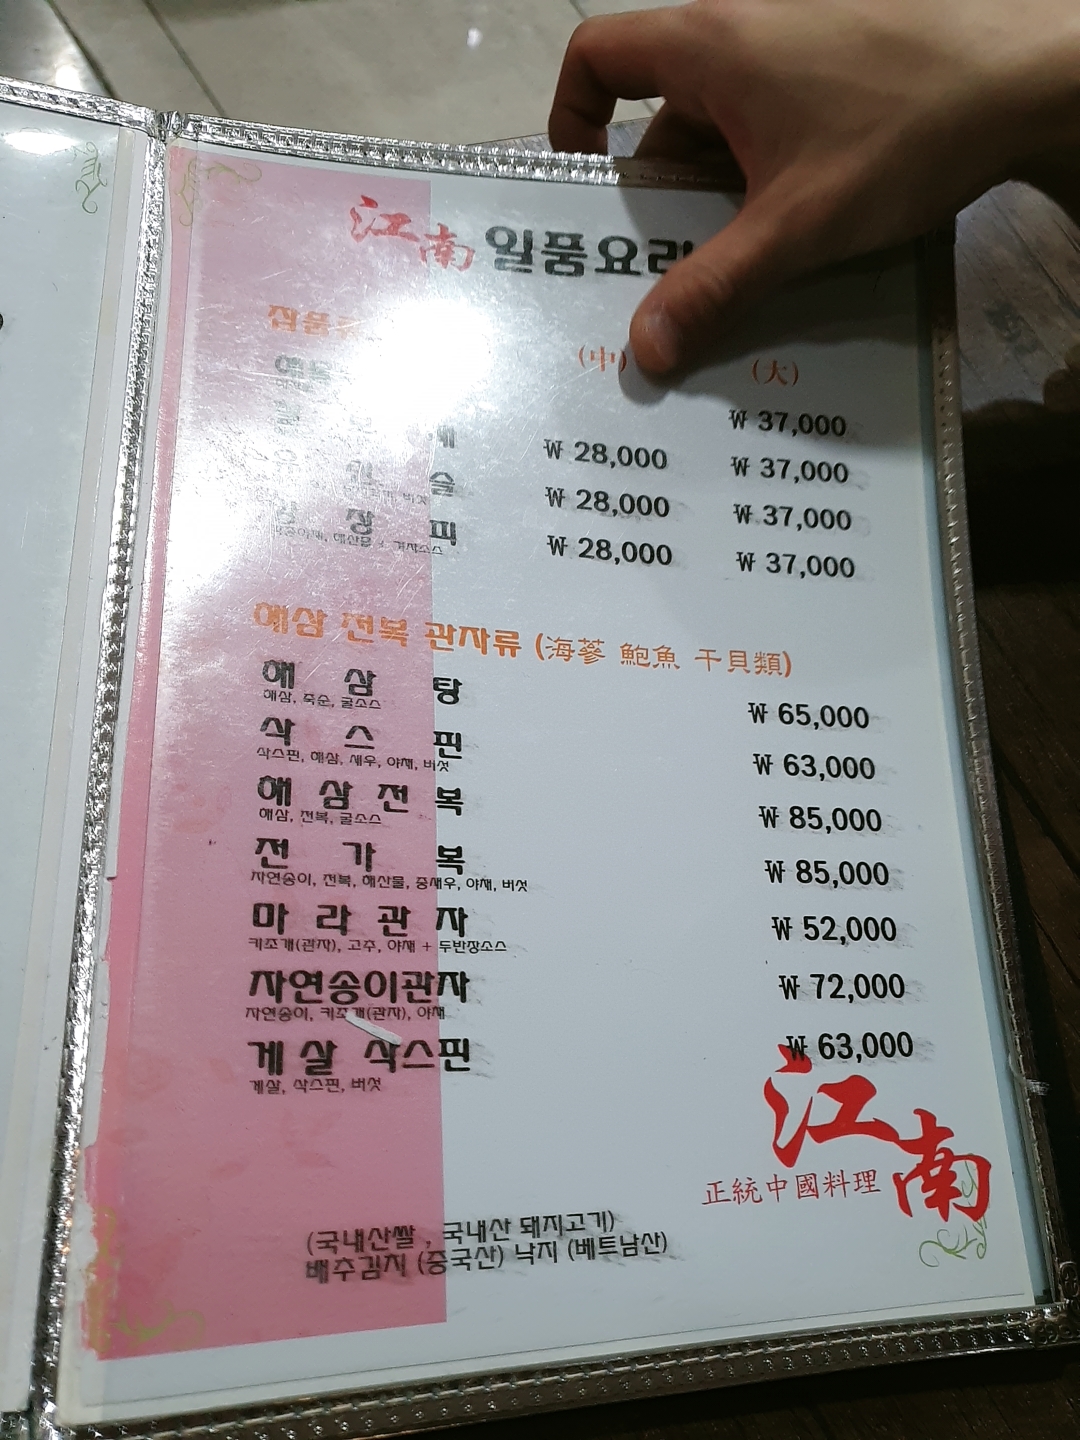 江南 일품요리
(中) (大)
₩ 37,000
₩ 28,000 ₩ 37,000
슬 ₩ 28,000 ₩ 37,000
장 피 ₩ 28,000 ₩ 37,000
해삼 전복 관자류 (海蔘 鮑魚 干貝類)
해 삼 탕 ₩ 65,000
해삼, 죽순, 굴소스
삭 스 핀 ₩ 63,000
삭스핀, 해삼, 새우, 야채, 버섯
해 삼 전 복 ₩ 85,000
해삼, 전복, 굴소스
전 가 복 ₩ 85,000
자연송이, 전복, 해산물, 중새우, 야채, 버섯
마 라 관 자 ₩ 52,000
키조개(관자), 고추, 야채 + 두반장소스
자연송이관자 ₩ 72,000
자연송이, 키조개(관자), 야채
게 살 삭스핀 ₩ 63,000
게살, 삭스핀, 버섯
江南
正統中國料理
(국내산쌀 , 국내산 돼지고기)
배추김치 (중국산) 낙지 (베트남산)